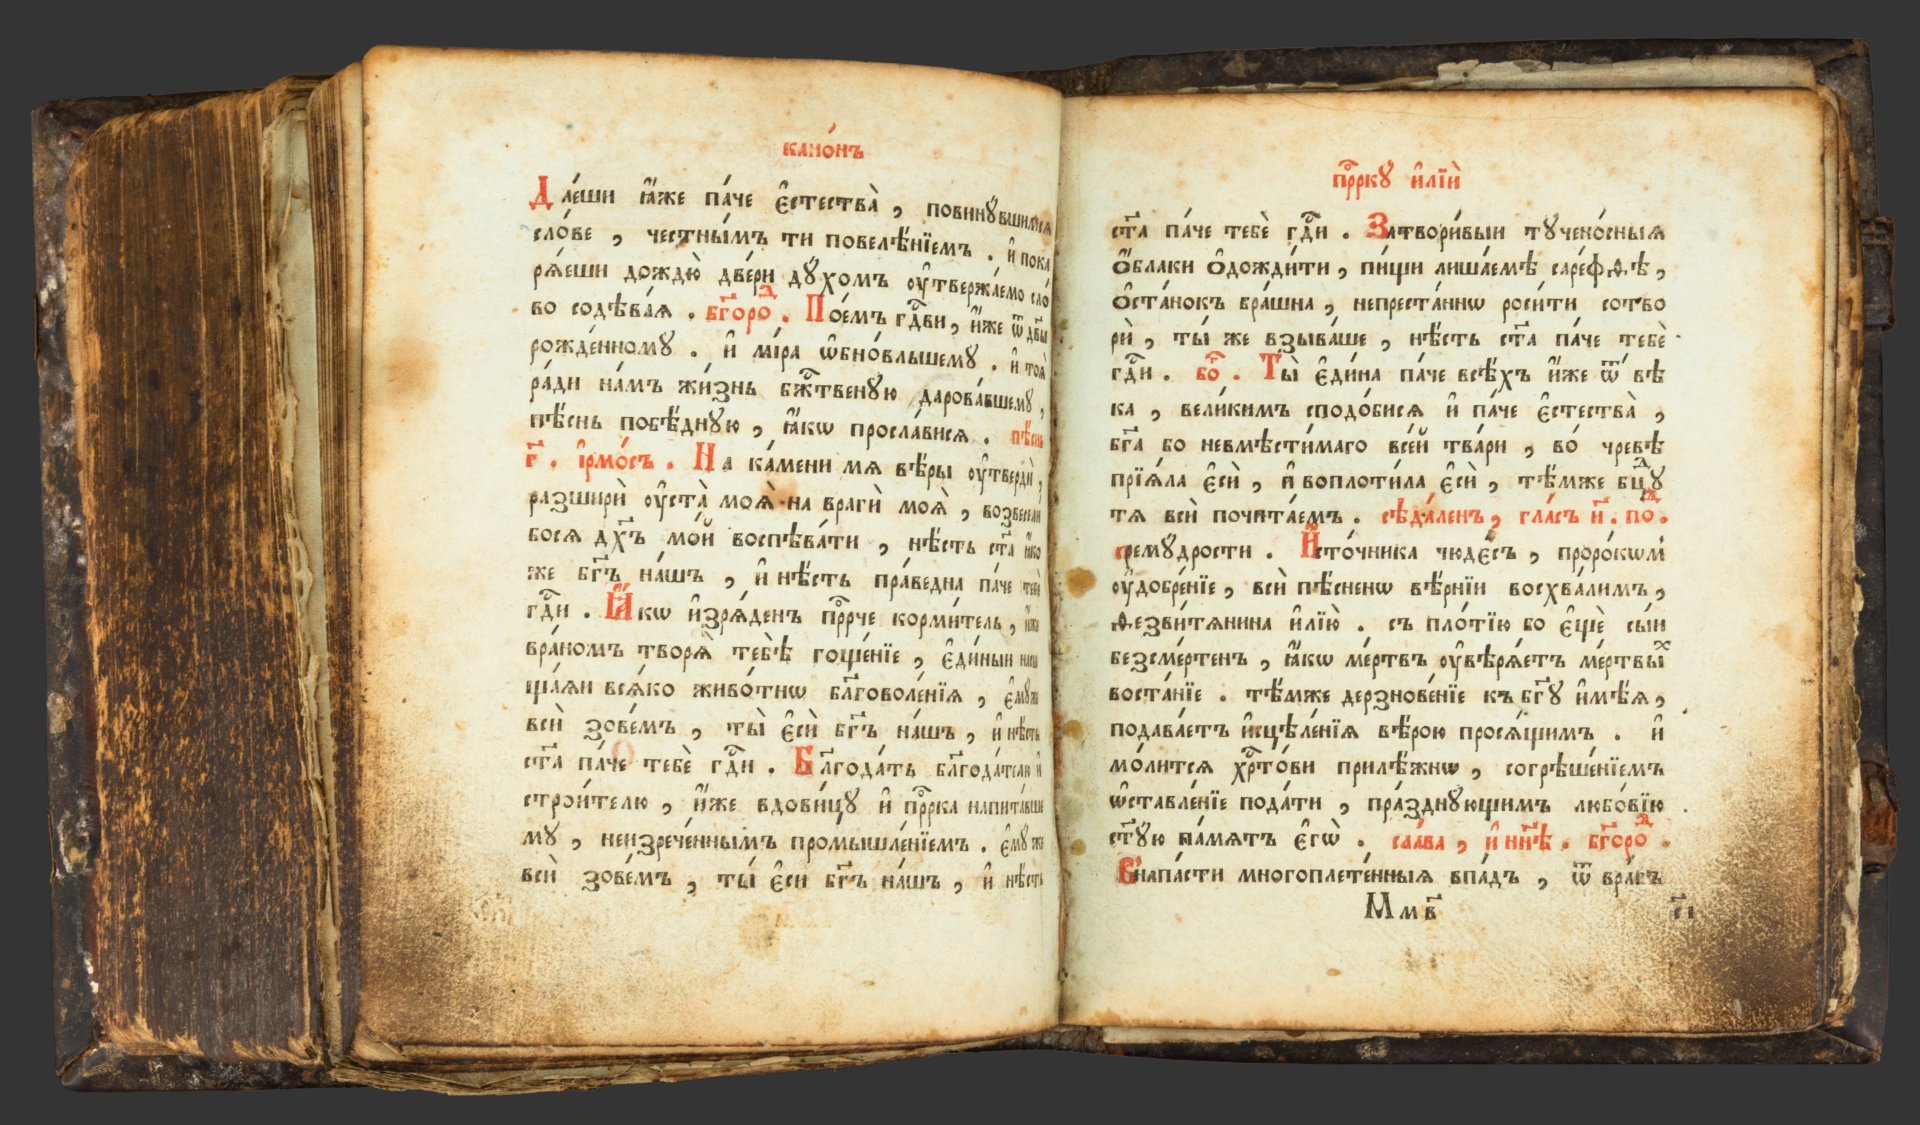 кано́нъ
Даеши ꙗ҆́же па́че є҆стества̀ , повинꙋвшимсѧ
сло́ве , че́стнымъ ти повелѣ́нїемъ . и҆ пока
рѧ́еши дождю̀ две́ри дꙋ́хомъ ᲂу҆твержа́емо сло́
во содѣва́ѧ . бг҃оро́ⷣ . Пое́мъ гдⷭ҇ви , и҆́же ѿ дв҃ы
рожде́нномꙋ . и҆ мі́ра ѡ҆бно́вльшемꙋ . и҆ тоѧ̀
ра́ди на́мъ жи́знь бжⷭ҇твенꙋю дарова́вшемꙋ ,
пѣ́снь побѣ́днꙋю , ꙗ҆́кѡ просла́висѧ . пѣ́снь
г҃ . і҆рмо́съ . На ка́мени мѧ вѣ́ры ᲂу҆твердѝ ,
разширѝ ᲂу҆ста̀ моѧ̀ на врагѝ моѧ̀ , возвесели
босѧ дх҃ъ мо́й воспѣва́ти , нѣ́сть ст҃а ꙗ҆́ко
же бг҃ъ на́шъ , и҆ нѣ́сть пра́ведна па́че тебѐ
гдⷭ҇и . Ꙗ҆́кѡ и҆зрѧ́денъ прⷪ҇рче корми́тель , и҆́же
вра́номъ творѧ̀ тебѣ̀ гоще́нїе , є҆ди́ныи насы
ща́ѧи всѧ́ко живо́тнѡ бл҃говоле́нїѧ , є҆мꙋже
всѝ зове́мъ , ты̀ є҆сѝ бг҃ъ на́шъ , и҆ нѣ́сть
ст҃а па́че тебѐ гдⷭ҇и . Бл҃года́ть бл҃года́тели и҆
строи́телю , и҆́же вдови́цꙋ и҆ прⷪ҇рка напита́вше
мꙋ , неизрече́ннымъ промышле́нїемъ . є҆мꙋже
всѝ зове́мъ , ты̀ є҆си бг҃ъ на́шъ , и҆ нѣ́сть
прⷪ҇ркꙋ и҆лїѝ
ст҃а па́че тебѐ гдⷭ҇и . Затвори́выи тꙋчено́сныѧ
ѻ҆́блаки ѻ҆дожди́ти , пи́щи лиша́емѣ саре́фѳѣ ,
ѻ҆ста́нокъ бра́шна , непреста́ннѡ роси́ти сотво
рѝ , ты́ же взыва́ше , нѣ́сть ст҃а па́че тебѐ
гдⷭ҇и . боⷢ҇ . Ты̀ є҆ди́на па́че всѣ́хъ и҆́же ѿ вѣ
ка , вели́кимъ сподо́бисѧ и҆ па́че є҆стества̀ ,
бг҃а бо невмѣсти́маго все́й тва́ри , во́ чревѣ
прїѧ́ла є҆сѝ , и҆ воплоти́ла є҆сѝ , тѣ́мже бцⷣꙋ
тѧ всѝ почита́емъ . сѣда́ленъ , гла́съ и҃ . поⷣ .
премꙋдрости . И҆сто́чника чюде́съ , проро́кѡм
ᲂу҆добре́нїе , всѝ пѣ́сненѡ вѣ́рнїи восхва́лимъ ,
ѳезви́тѧнина и҆лїю̀ . съ пло́тїю бо є҆щѐ сы́и
безсме́ртенъ , ꙗ҆́кѡ ме́ртвъ ᲂу҆вѣрѧ́етъ ме́ртвыⷯ
воста́нїе . тѣ́мже дерзнове́нїе къ бг҃ꙋ и҆мѣ́ѧ ,
подава́етъ и҆сцѣле́нїѧ вѣ́рою просѧ́щимъ . и҆
мо́литсѧ хрⷭ҇то́ви прилѣ́жнѡ , согрѣше́нїемъ
ѡ҆ставле́нїе пода́ти , пра́зднꙋющимъ любо́вїю
ст҃ꙋ́ю па́мѧть є҆гѡ̀ . сла́ва , и҆ нн҃ѣ . бг҃ороⷣ .
Внапа́сти многоплете́нныѧ впа́дъ , ѿ вра́гъ
Ммв҃